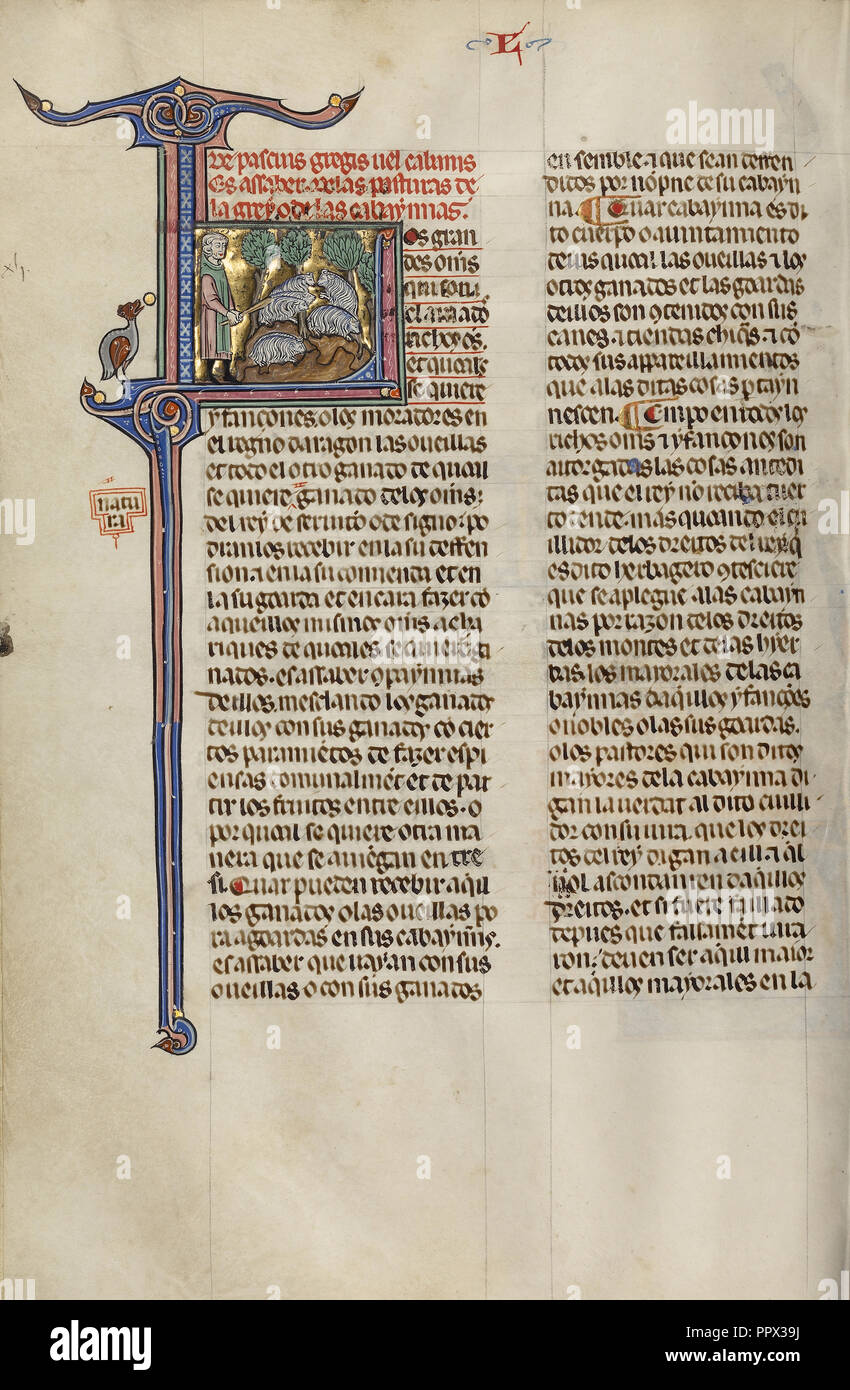 L
De pascuis gregis uel cabanis
Es assaber de las pasturas de
la grey o de las cabaynnas.
Los gran
des omis
qui son
clamados
richos es.
et quale
se quiere
yfançones. o los moradores en
el regno daragon las oueillas
et todo el otro ganado de quall
se quiere ganado de los omis:
del rey de seruicio o de signo: po
dran los recebir en la su deffen
sion ⁊ en la su comienda et en
la su goarda et encara fazer cō
aqueillos mismos omis
riques de quales se quiere
nados. es assaber
deillos. mesclando los ganados
deillos con sus ganados cō cier
tos paramiētos de fazer espi
ensas comunalmēt et de par
tir los fruitos entre eillos. o
por quall se quiere otra ma
nera que se auiēgan entre
si. Quar pueden recebir aqll
los ganados o las oueillas po
ra agoardas en sus cabaynnas.
es assaber que uayan con sus
oueillas o con sus ganados
xlj.
natu
ra
ensemble. ⁊ que sean deffen
didos por nōpne de su cabayn
na. Quar cabaynna es di
to cuerpo o aiuntamiento
deius quall las oueillas ⁊ los
otros ganados et las goardas
deillos son ꝯtenidos con sus
canes. ⁊ tiendas chiqs. ⁊ cō
todos sus appareillamientos
que a las ditas cosas ptayn
nescen. Empo en todos los
richos omis ⁊ yfançones son
atorgadas las cosas antedi
tas que el rey no reciba tuer
to ende. mas quando el cu
illidor de los dreitos del rey q
es dito herbagero ꝯtesciere
que se aplegue a las cabayn
nas por razon de los dreitos
de los montes et de las yer
bas. los mayorales de las ca
baynnas daqillos yfançōes
o nobles o las sus goardas.
o los pastores qui son ditos
mayores de la cabaynna di
gan la uerdat al dito cuilli
dor con su iura. que los drei
tos del rey digan a eill. ⁊ ql
nol ascondan ren daquillos
dreitos. et si fuere faillado
depues que faillamēt iura
ron: deuen ser aqll maior
et aqillos mayorales en la
alamy
Image ID: PPX39J
www.alamy.com